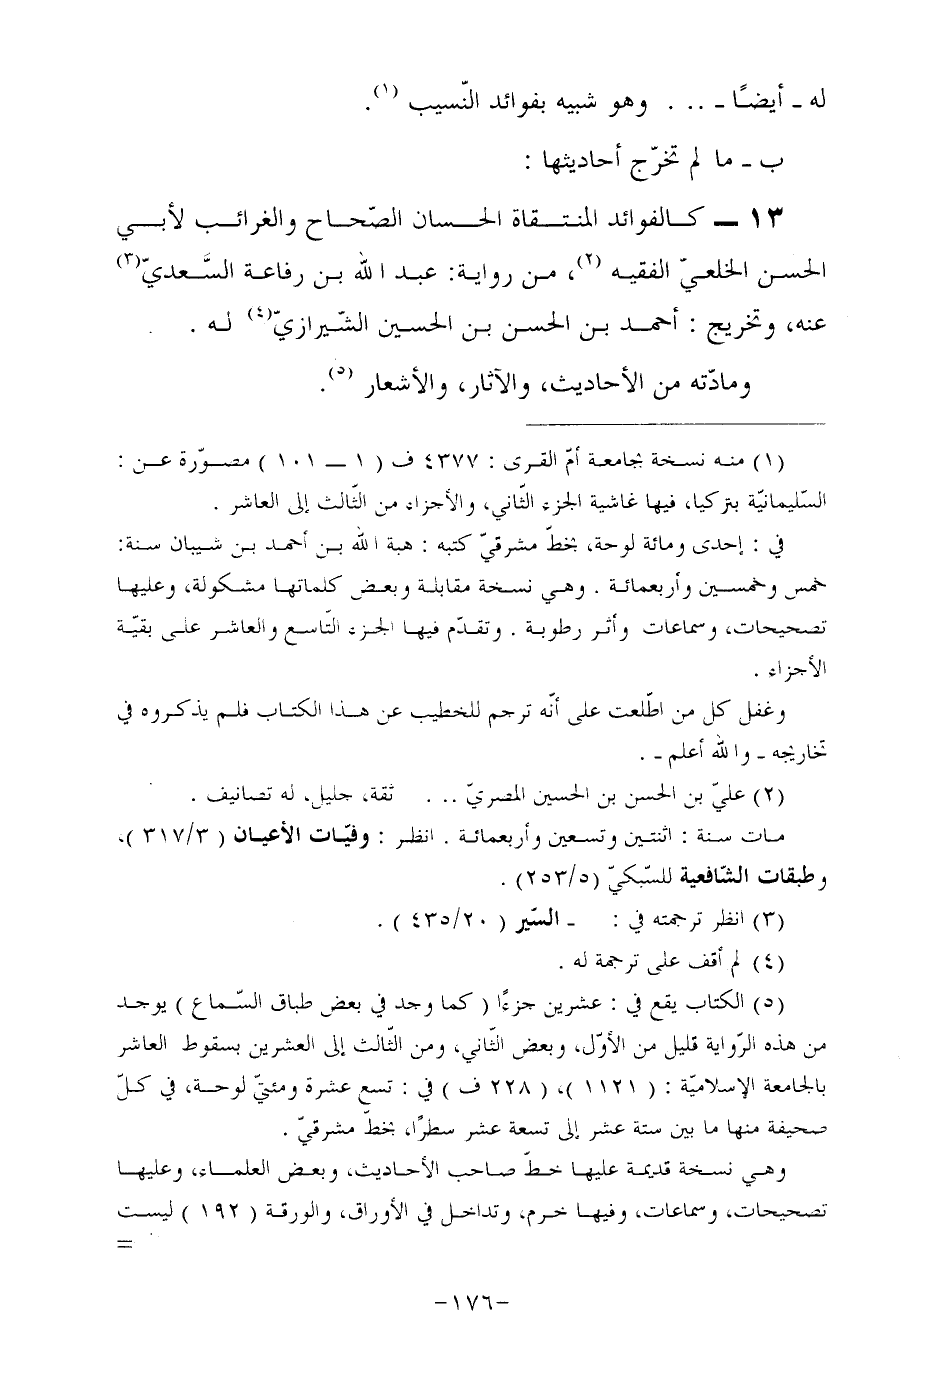 له ـ أيضًا ـ .. . وهو شبيه بفوائد النّسيب (١).
ب ـ ما لم تخرّج أحاديثها :
١٣ ــ كـالفوائد المنتـقاة الحسان الصّحاح والغرائب لأبي
الحسن الخلعيّ الفقيه (٢)، من رواية: عبد الله بن رفاعة السَّعديّ(٣)
عنه، وتخريج : أحمد بن الحسن بن الحسين الشّيرازيّ(٤) له .
ومادّته من الأحاديث، والآثار، والأشعار (٥).
(١) منه نسخة بجامعة أمّ القرى : ٤٣٧٧ ف ( ١ ــ ١٠١ ) مصوّرة عن :
السّليمانيّة بتركيا، فيها غاشية الجزء الثّاني، والأجزاء من الثّالث إلى العاشر .
في : إحدى ومائة لوحة، بخطّ مشرقيّ كتبه : هبة الله بن أحمد بن شيبان سنة:
خمس وخمسين وأربعمائة . وهي نسخة مقابلة وبعض كلماتها مشكولة، وعليها
تصحيحات، وسماعات وأثر رطوبة . وتقدّم فيها الجزء التّاسع والعاشر على بقيّة
الأجزاء .
وغفل كل من اطّلعت على أنّه ترجم للخطيب عن هذا الكتاب فلم يذكروه في
تخاريجه ـ والله أعلم ـ .
(٢) عليّ بن الحسن بن الحسين المصريّ .. . ثقة، جليل، له تصانيف .
مات سنة : اثنتين وتسعين وأربعمائة . انظر : وفيّات الأعيان ( ٣١٧/٣ )،
وطبقات الشّافعية للسّبكيّ (٢٥٣/٥) .
(٣) انظر ترجمته في : ـ السّير ( ٤٣٥/٢٠ ) .
(٤) لم أقف على ترجمة له .
(٥) الكتاب يقع في : عشرين جزءًا ( كما وجد في بعض طباق السّماع ) يوجد
من هذه الرّواية قليل من الأوّل، وبعض الثّاني، ومن الثّالث إلى العشرين بسقوط العاشر
بالجامعة الإسلاميّة : ( ١١٢١ )، ( ٢٢٨ ف ) في : تسع عشرة ومئتيّ لوحة، في كلّ
صحيفة منها ما بين ستة عشر إلى تسعة عشر سطرًا، بخطّ مشرقيّ .
وهي نسخة قديمة عليها خطّ صاحب الأحاديث، وبعض العلماء، وعليها
تصحيحات، وسماعات، وفيها خرم، وتداخل في الأوراق، والورقة ( ١٩٢ ) ليست
=
-١٧٦-